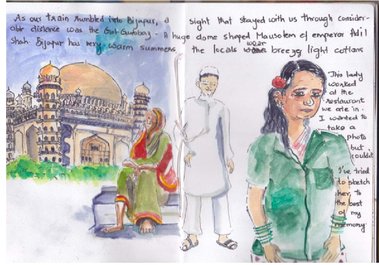 As our train rumbled into Bijapur, a sight that stayed with us through consider-
able distance was the Gol-Gumbaz - A huge dome shaped Mausolem of emperor Adil
Shah. Bijapur has very warm summers, the locals wear breezy light cottons
This lady
worked
at the
restaurant
we ate in.
I wanted
to take
a
photo
but
couldn't
I've tried
to sketch
her, to
the best
of my
memory